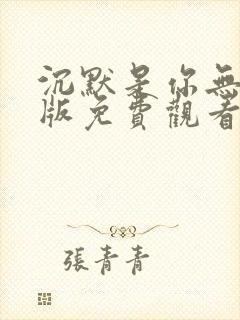 沉默是你無
版免費觀看
張青青